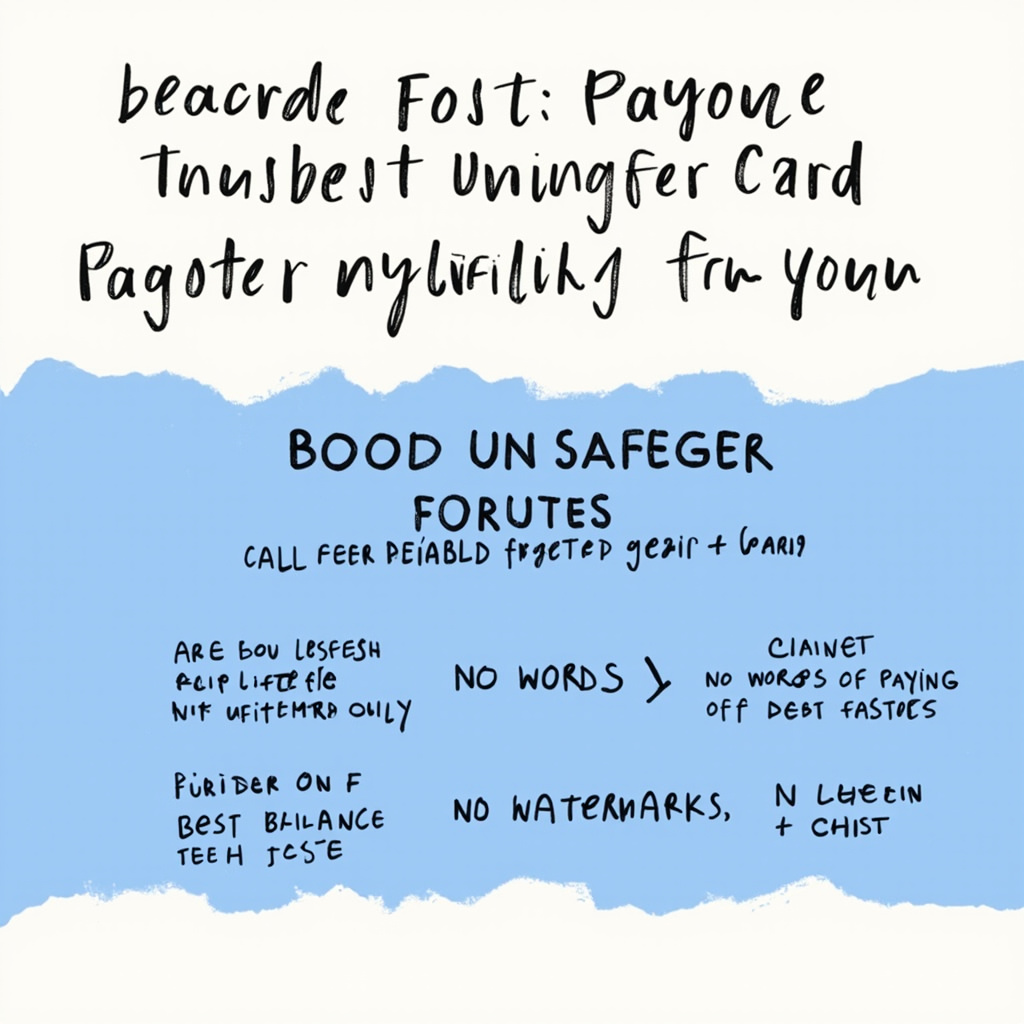 beacrde Fost: Payoue
Tnusbest Uningfer Card
Pagoter nylifilikg frn youn
BOOD UN SAFEGER
FORUTES
CALL FEER PEÍABLD frgeTED geair +
ARE bou LesFESH
LiFTE fle
OUILY
NO WORDS
CIAINET
NO WORPS OF PAYING
OFF DEBT FASTOES
PüRiDER ON F
BEST BALANCE
TEEH JCSTE
NO WATERMARKS,
N LHECIN
+ CHIST